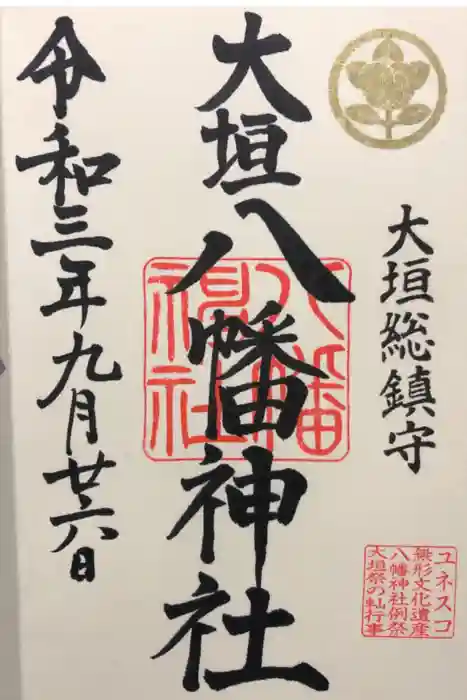 大垣総鎮守
大垣八幡神社
八幡神社
令和三年九月廿六日
ユネスコ
無形文化遺産
八幡神社例祭
大垣祭の軕行事